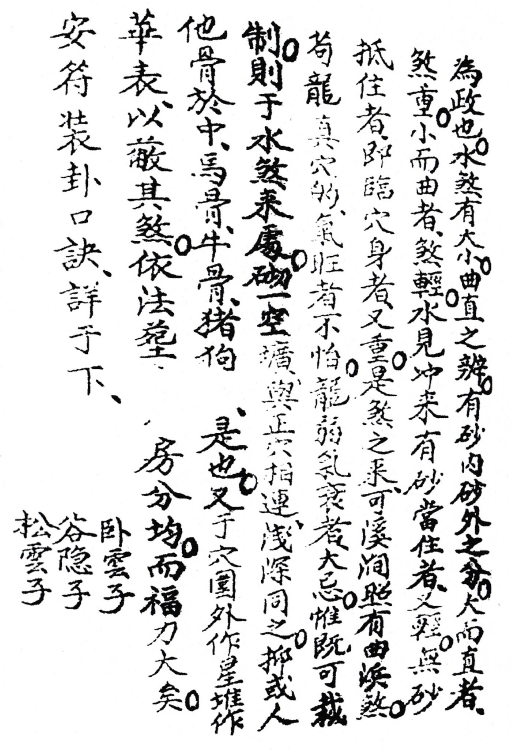 為政也。水煞有大小曲直之辨。有砂内砂外之分。大而直者、
煞重。小而曲者、煞輕。水見冲来有砂當住者、又輕。無砂
抵住者、即臨穴身者、又重。是煞之来、可溪澗照有曲浜煞。
苟龍真穴的、氣旺者不怕。龍弱氣衰者、大忌。惟既可裁
制。則于水煞来處。砌一空壙與正穴相連、浅深同之。抑或人
他骨於中、馬骨、牛骨、猪狗、是也。又于穴圍外作星堆作
華表、以蔽其煞。依法塟、房分均。而福力大矣。
安符装卦口訣、詳于下、
卧雲子
谷隐子
松雲子